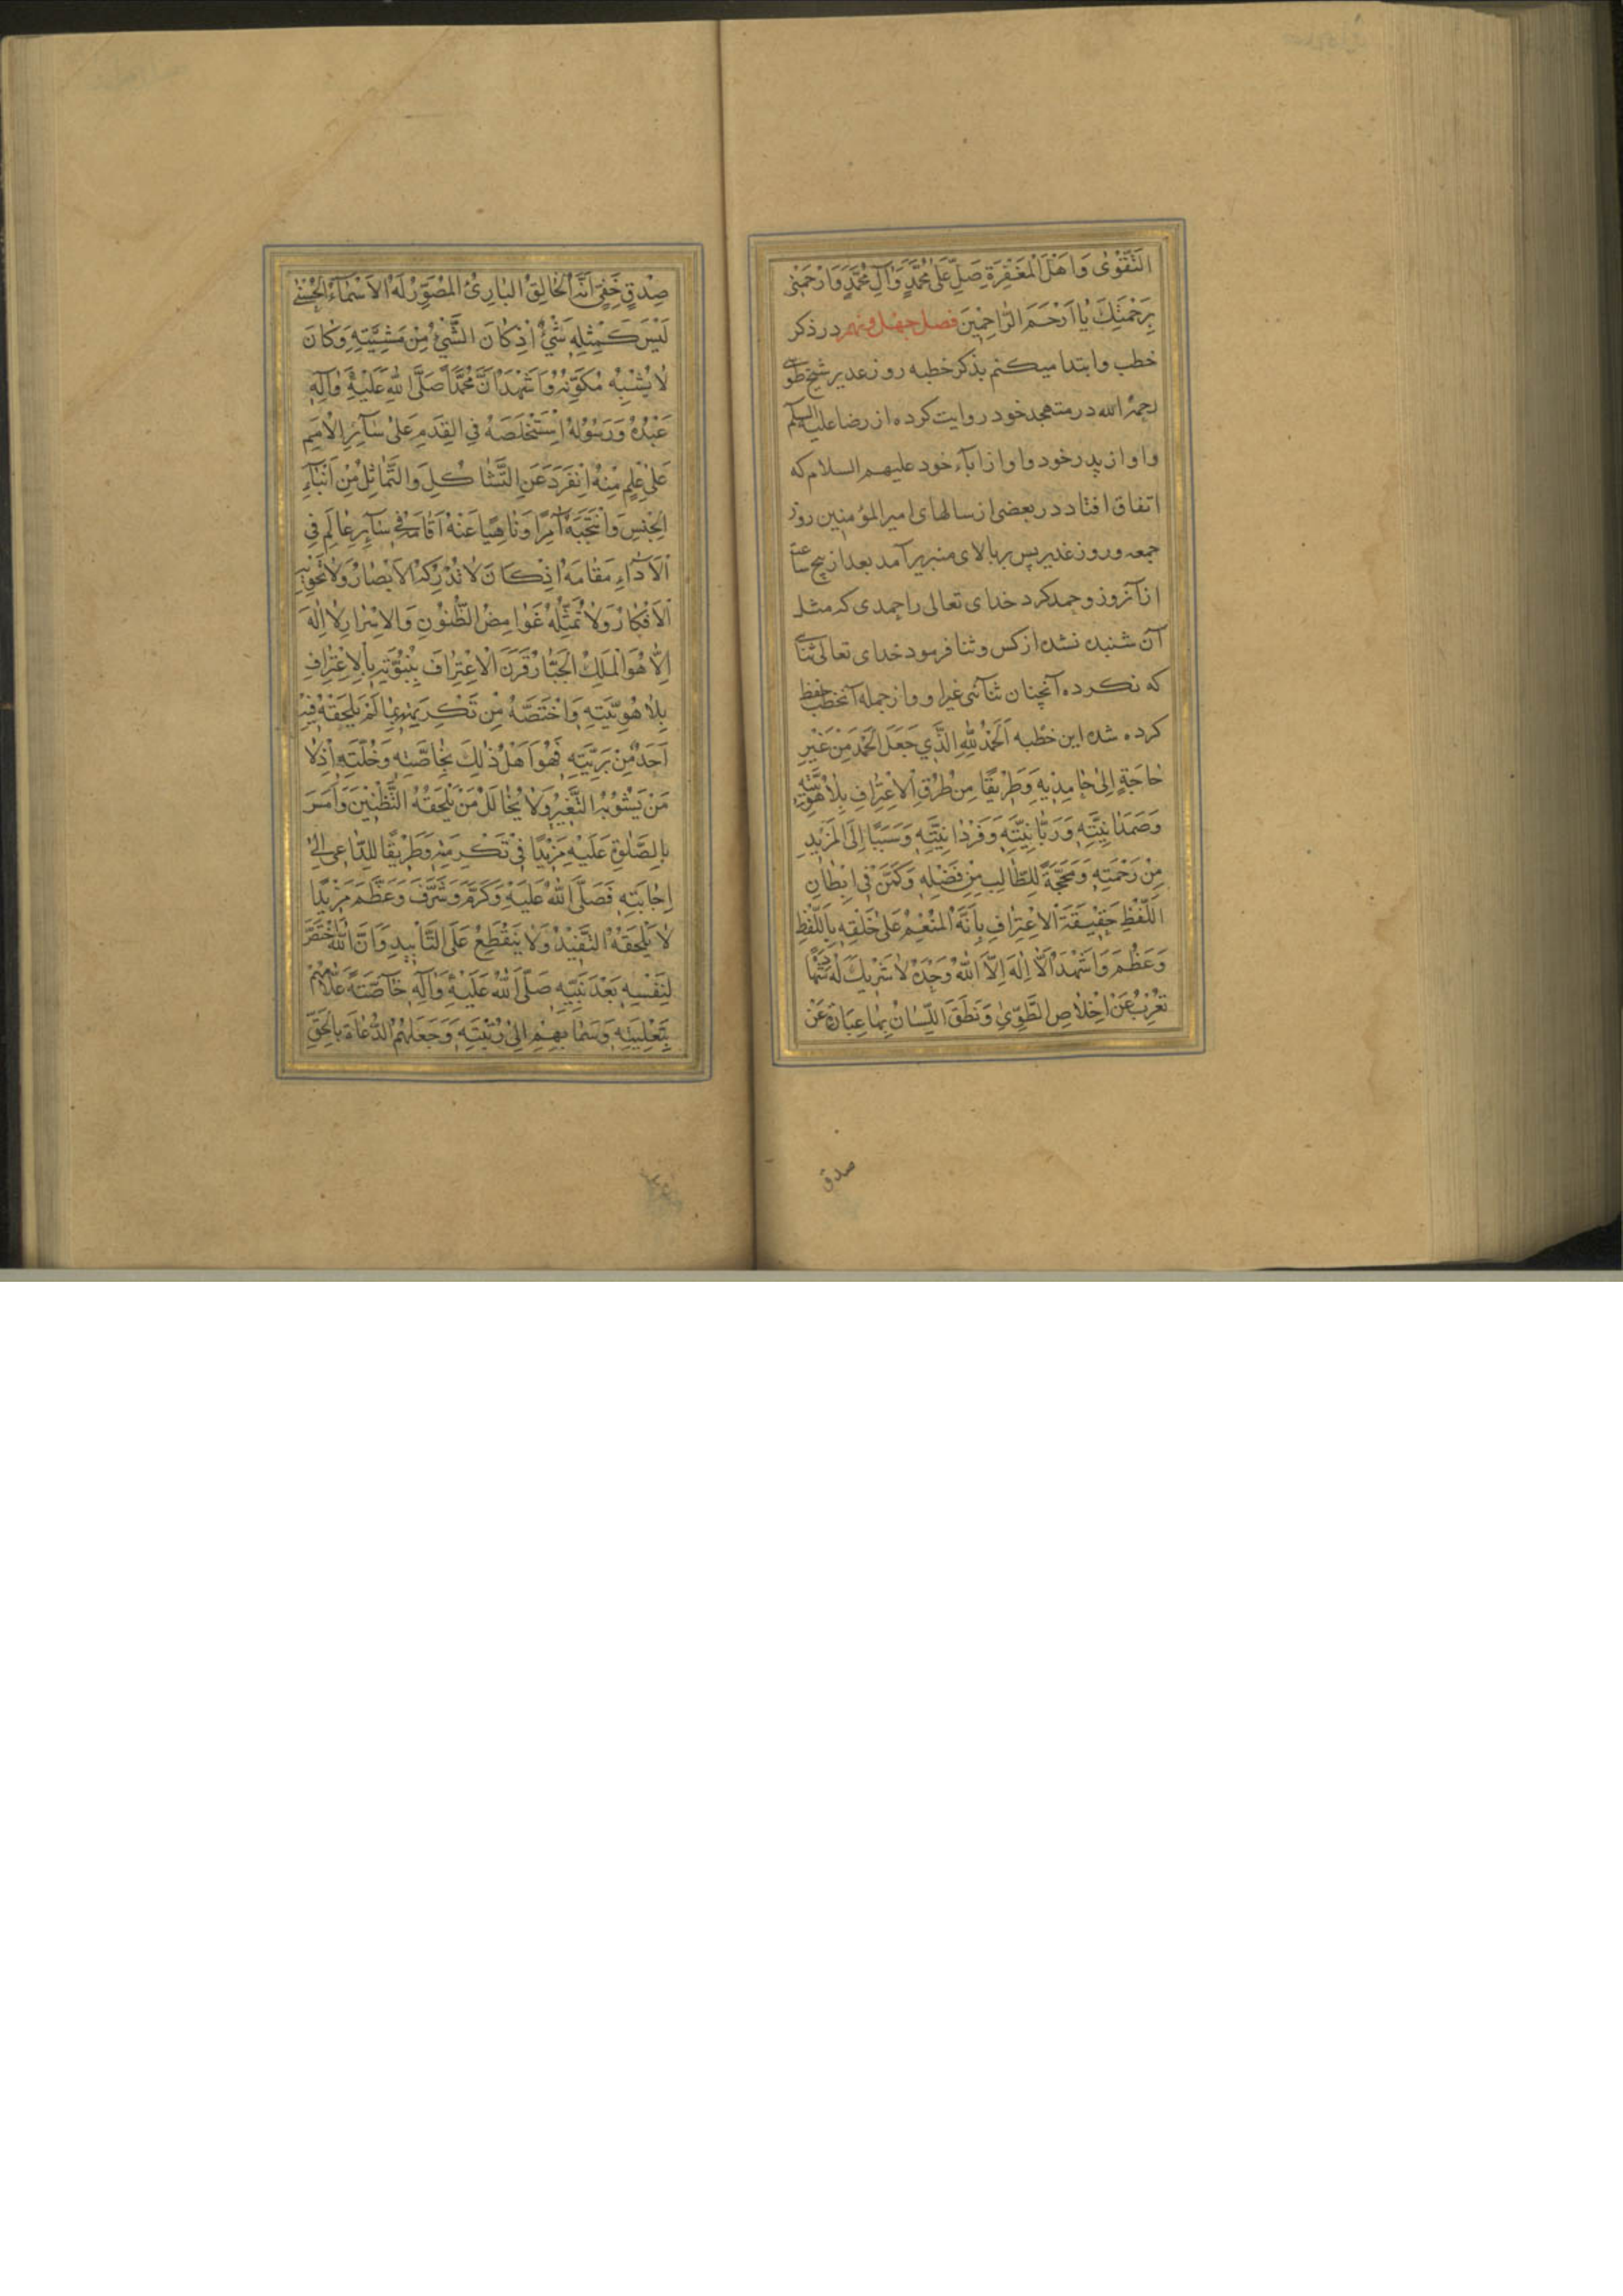 التَّقْوٰى وَاَهْلَ الْمَغْفِرَةِ صَلِّ عَلٰى مُحَمَّدٍ وَآلِ مُحَمَّدٍ وَارْحَمْنِى
بِرَحْمَتِكَ يٰا اَرْحَمَ الرّٰاحِمِينَ فصل چهل ونهم در ذكر
خطب وابتدا ميكنم بذكر خطبه روز غدير شيخ طوسى
رحمه الله در متهجد خود روايت كرده از رضا عليه السلم
واو از پدر خود واو از اباء خود عليهم السلام كه
اتفاق افتاد در بعضى از سالهاى امير المؤمنين روز
جمعه وروز غدير پس بر بالاى منبر برآمد بعد از پنج ساعت
از آنروز وحمد كرد خداى تعالى را حمدى كه مثل
آن شنيده نشده از كس وثنا فرمود خداى تعالى ثنائى
كه نكرده آنچنان ثنائى غير او واز جمله آنخطب حفظ
كرده شده اين خطبه اَلْحَمْدُ لِلّٰهِ الَّذِي جَعَلَ الْحَمْدَ مِنْ غَيْرِ
حٰاجَةٍ اِلىٰ حٰامِدِيهِ وَطَرِيقًا مِنْ طُرُقِ الْاِعْتِرٰافِ بِلٰاهُوتِيَّتِهِ
وَصَمَدٰانِيَّتِهِ وَرَبّٰانِيَّتِهِ وَفَرْدٰانِيَّتِهِ وَسَبَبًا اِلَى الْمَزِيدِ
مِنْ رَحْمَتِهِ وَمَحَجَّةً لِلطّٰالِبِ مِنْ فَضْلِهِ وَكَمَّنَ فِى اِبْطٰانِ
اللَّفْظِ حَقِيقَةَ الْاِعْتِرٰافِ بِاَنَّهُ الْمُنْعِمُ عَلىٰ خَلْقِهِ بِاللَّفْظِ
وَعَظُمَ وَاَشْهَدُ اَلّٰا اِلٰهَ اِلَّا اللّٰهُ وَحْدَهُ لٰا شَرِيكَ لَهُ شَهٰادَةً
تُعْرِبُ عَنْ اِخْلٰاصِ الطَّوِيِّ وَنَطَقَ اللِّسٰانُ بِهٰا عِبٰارَةً عَنْ
صدق
صِدْقٍ خَفِيٍّ اَنَّهُ الْخٰالِقُ الْبٰارِئُ الْمُصَوِّرُ لَهُ الْاَسْمٰاءُ الْحُسْنىٰ
لَيْسَ كَمِثْلِهِ شَيْءٌ اِذْ كٰانَ الشَّيْءُ مِنْ مَشِيَّتِهِ وَكٰانَ
لٰا يُشْبِهُهُ مُكَوِّنُهُ وَاَشْهَدُ اَنَّ مُحَمَّدًا صَلَّى اللّٰهُ عَلَيْهِ وَآلِهِ
عَبْدُهُ وَرَسُولُهُ اِسْتَخْلَصَهُ فِى الْقِدَمِ عَلىٰ سٰائِرِ الْاُمَمِ
عَلىٰ عِلْمٍ مِنْهُ اِنْفَرَدَ عَنِ التَّشٰاكُلِ وَالتَّمٰاثُلِ مِنْ اَبْنٰاءِ
الْجِنْسِ وَانْتَجَبَهُ آمِرًا وَنٰاهِيًا عَنْهُ اَقٰامَهُ فِى سٰائِرِ عٰالَمِ فِى
الْاَدٰاءِ مَقٰامَهُ اِذْ كٰانَ لٰا تُدْرِكُهُ الْاَبْصٰارُ وَلٰا تَحْوِيهِ
الْاَفْكٰارُ وَلٰا تُمَثِّلُهُ غَوٰامِضُ الظُّنُونِ وَالْاَسْرٰارِ لٰا اِلٰهَ
اِلّٰا هُوَ الْمَلِكُ الْجَبّٰارُ قَرَنَ الْاِعْتِرٰافَ بِنُبُوَّتِهِ بِالْاِعْتِرٰافِ
بِلٰاهُوتِيَّتِهِ وَاخْتَصَّهُ مِنْ تَكْرِيمِهِ بِمٰا لَمْ يَلْحَقْهُ فِيهِ
اَحَدٌ مِنْ بَرِيَّتِهِ فَهُوَ اَهْلُ ذٰلِكَ بِخٰاصَّتِهِ وَخُلَّتِهِ اِذْ لٰا
مَنْ يَشُوبُهُ التَّغْيِيرُ وَلٰا يُخٰالِلُ مَنْ يَلْحَقُهُ التَّظْنِينُ وَاَمَرَ
بِالصَّلٰوةِ عَلَيْهِ مَزِيدًا فِى تَكْرِمَتِهِ وَطَرِيقًا لِلدّٰاعِى اِلىٰ
اِجٰابَتِهِ فَصَلَّى اللّٰهُ عَلَيْهِ وَكَرَّمَ وَشَرَّفَ وَعَظَّمَ مَزِيدًا
لٰا يَلْحَقُهُ التَّفْنِيدُ وَلٰا يَنْقَطِعُ عَلَى التَّأْبِيدِ وَاَنَّ اللّٰهَ اخْتَصَّ
لِنَفْسِهِ بَعْدَ نَبِيِّهِ صَلَّى اللّٰهُ عَلَيْهِ وَآلِهِ خٰاصَّةً عَلٰاهُمْ
بِتَعْلِيَتِهِ وَسَمٰا بِهِمْ اِلىٰ رُتْبَتِهِ وَجَعَلَهُمُ الدُّعٰاةَ بِالْحَقِّ